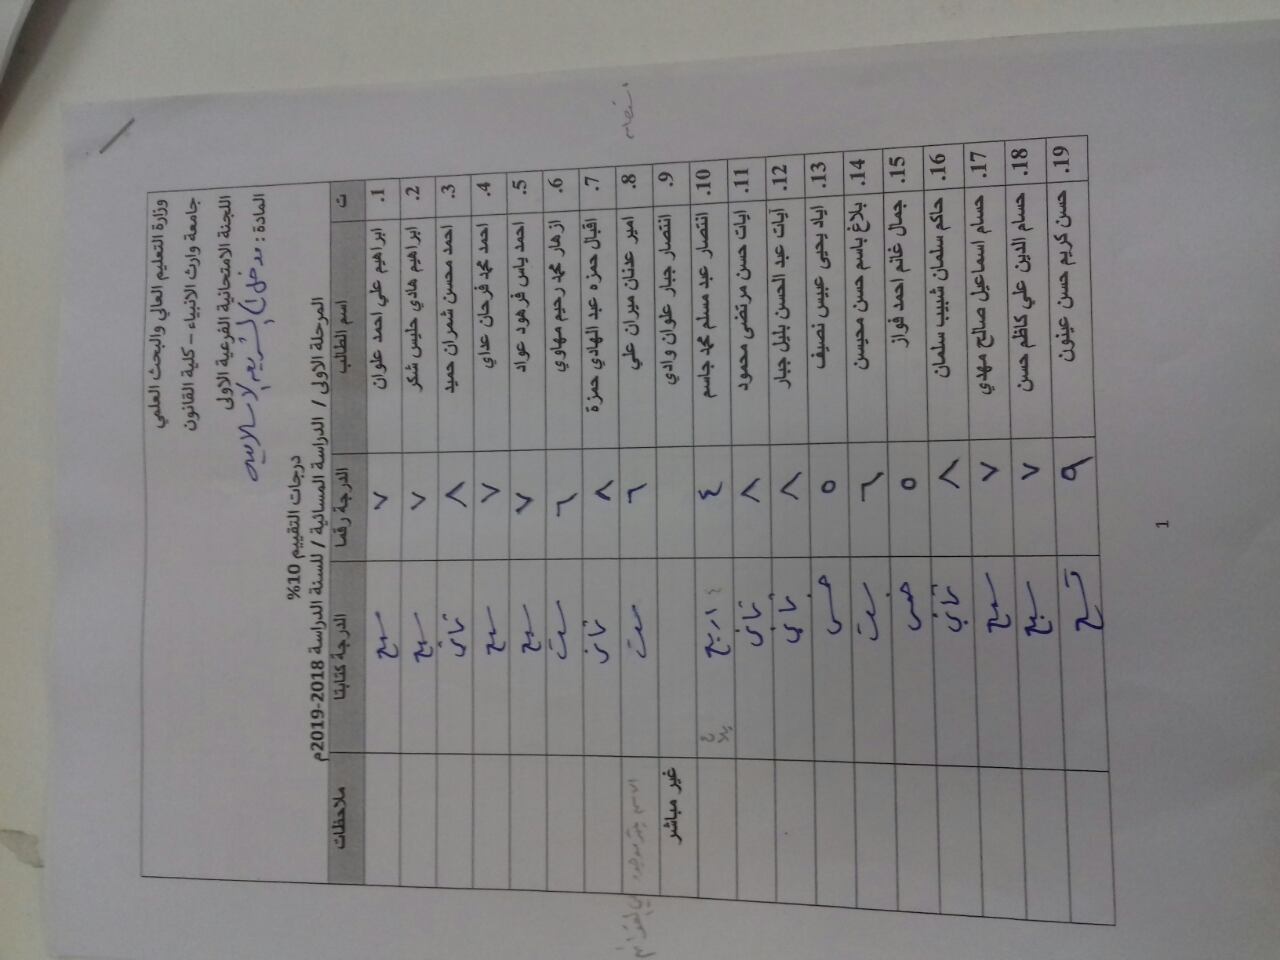 وزارة التعليم العالي والبحث العلمي
جامعة وارث الانبياء – كلية القانون
اللجنة الامتحانية الفرعية الاولى
المادة : مدخل الشريعة الاسلامية
المرحلة الاولى / الدراسة المسائية / للسنة الدراسة 2018-2019م
درجات التقييم 10%
ت اسم الطالب الدرجة رقما الدرجة كتابتا ملاحظات
1. ابراهيم علي احمد علوان ٧ سبع
2. ابراهيم هادي حليس شكر ٧ سبع
3. احمد محسن شمران حميد ٨ ثمان
4. احمد محمد فرحان عداي ٧ سبع
5. احمد ياس فرهود عواد ٧ سبع
6. ازهار محمد رحيم مهاوي ٦ ست
7. اقبال حمزه عبد الهادي حمزة ٨ ثمان
8. امير عدنان ميران علي ٦ ست الاسم غير موجود
9. انتصار جبار علوان وادي غير مباشر
10. انتصار عبد مسلم محمد جاسم ٤ اربع ٤
11. ايات حسن مرتضى محمود ٨ ثمان
12. آيات عبد الحسن بليل جبار ٨ ثماني
13. اياد يحيى عبيس نصيف ٥ خمس
14. بلاغ باسم حسن محيسن ٦ ست
15. جمال غانم احمد فواز ٥ خمس
16. حاكم سلمان شبيب سلمان ٨ ثماني
17. حسام اسماعيل صالح مهدي ٧ سبع
18. حسام الدين علي كاظم حسن ٧ سبع
19. حسن كريم حسن عيفون ٩ تسع
1